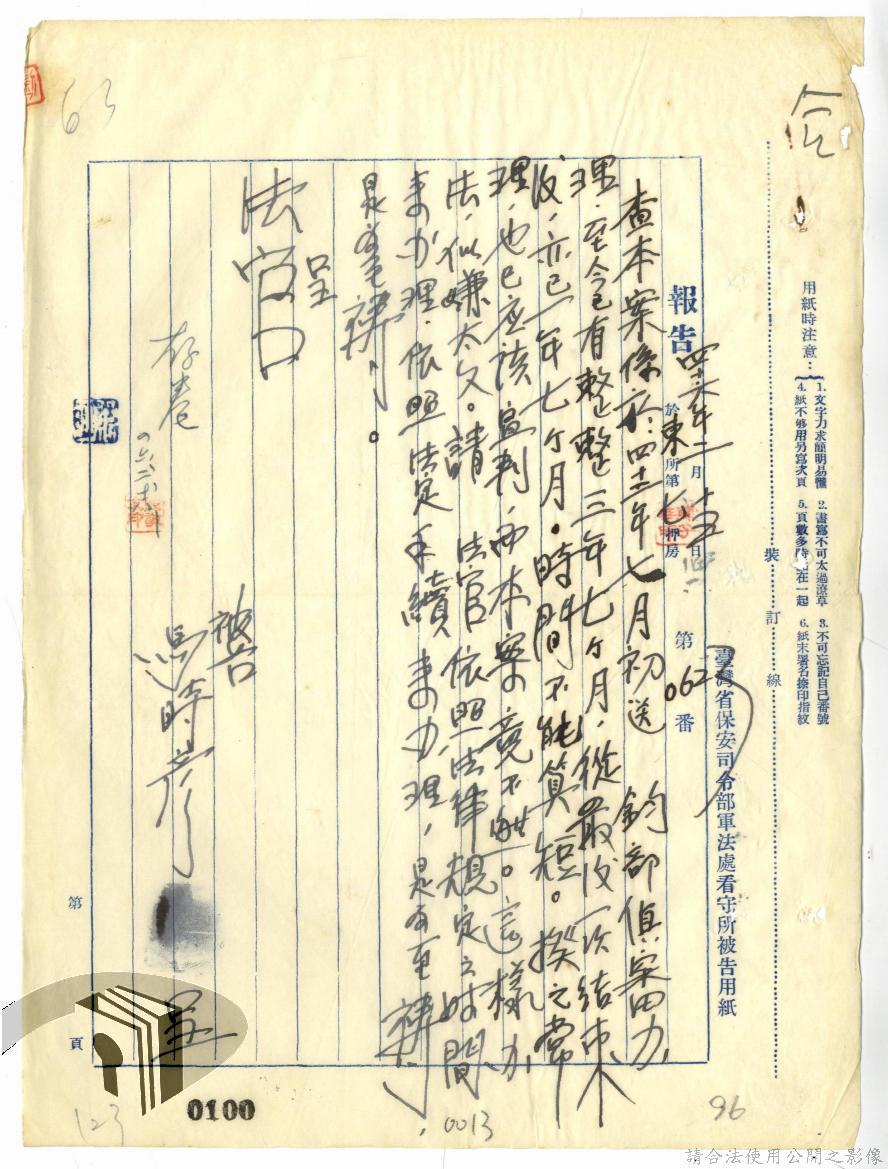 用紙時注意：
1. 文字力求簡明易懂
2. 書寫不可太過潦草
3. 不可忘記自己番號
4. 紙不够用另寫次頁
5. 頁數多時在一起
6. 紙末署名捺印指紋
裝訂線
臺灣省保安司令部軍法處看守所被告用紙
報告 四六年二月十五日 於東所第七押房 第0623番
查本案係於四十二年七月初送 鈞部偵審办
理．至今已有整整三年七ヶ月，從最後一次結束
後，亦已一年七ヶ月。時間不能算短。揆之常
理，也已應該宣判，而本案竟不然。這樣办
法，似嫌太久。請 法官依照法律規定之時間
來办理．依照法定手續來办理，是為至禱，
是為至禱。
呈
法官
存卷
被告 馮時彥 呈
第 頁
63
123
0100
0013
96
請合法使用公開之影像